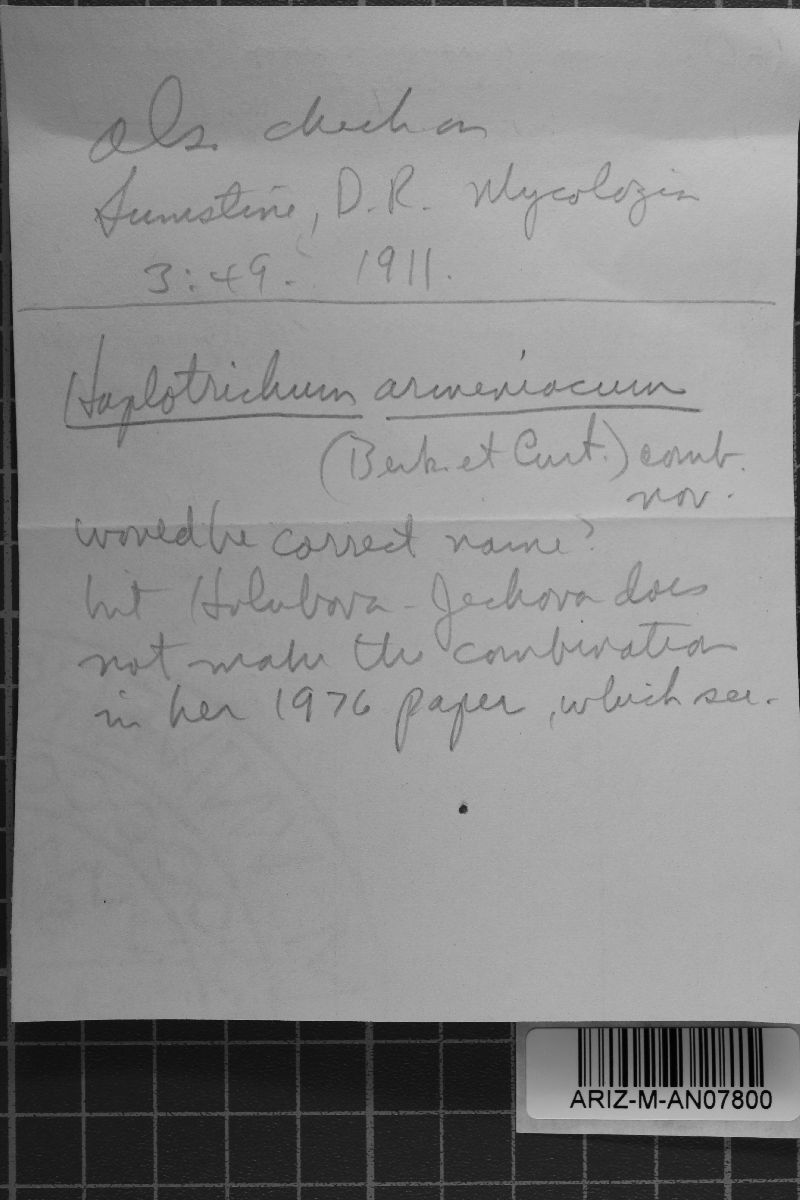 als. check on
Sumstine, D.R. Mycologia
3:49. 1911.
Haplotrichum armeniacum
(Berk. et Curt.) comb.
nov.
would be correct name?
but Holubova-Jechova does
not make the combination
in her 1976 paper, which see.
ARIZ-M-AN07800